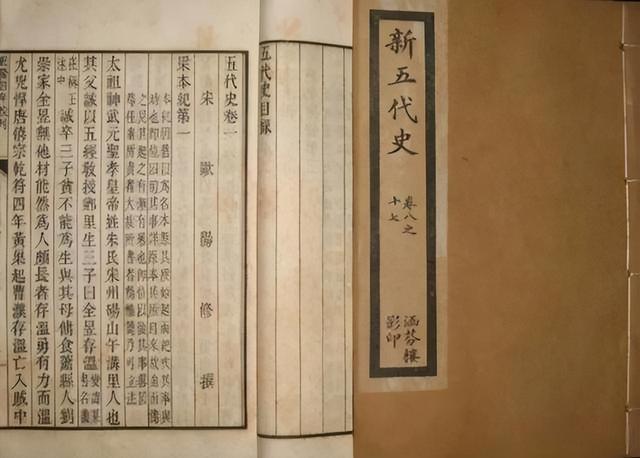 新五代史
卷八之
十七
涵芬樓
影印
五代史目錄
五代史卷一
宋 歐陽修 撰
梁本紀第一
太祖神武元聖孝皇帝姓朱氏宋州碭山午溝里人也
其父誠以五經教授鄉里生三子曰全昱存溫
誠卒三子貧不能爲生與其母傭食蕭縣人劉
崇家全昱無他材能然爲人頗長者存溫勇有力而溫
尤兇悍唐僖宗乾符四年黃巢起曹濮存溫亡入賊中